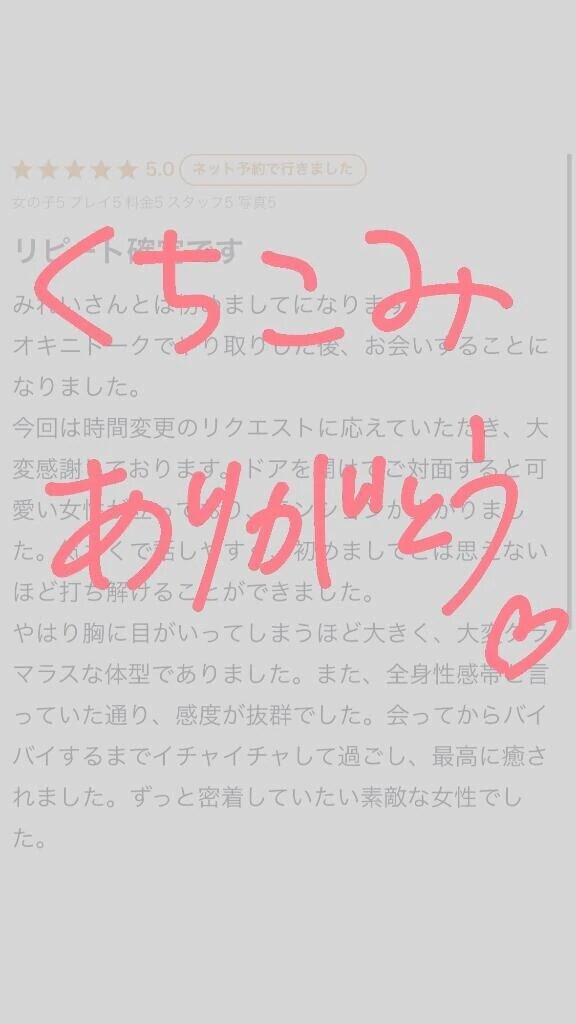 ★★★★★ 5.0 ネット予約で行きました
女の子5 プレイ5 料金5 スタッフ5 写真5
リピート確定です
くちこみ
みれいさんとは初めましてになります
オキニトークでやり取りした後、お会いすることに
なりました。
今回は時間変更のリクエストに応えていただき、大
変感謝しております。ドアを開けてご対面すると可
愛い女性が立っており、テンションが上がりまし
ありがとう♡
た。気さくで話しやすく、初めましてとは思えない
ほど打ち解けることができました。
やはり胸に目がいってしまうほど大きく、大変グラ
マラスな体型でありました。また、全身性感帯と言
っていた通り、感度が抜群でした。会ってからバイ
バイするまでイチャイチャして過ごし、最高に癒さ
れました。ずっと密着していたい素敵な女性でし
た。